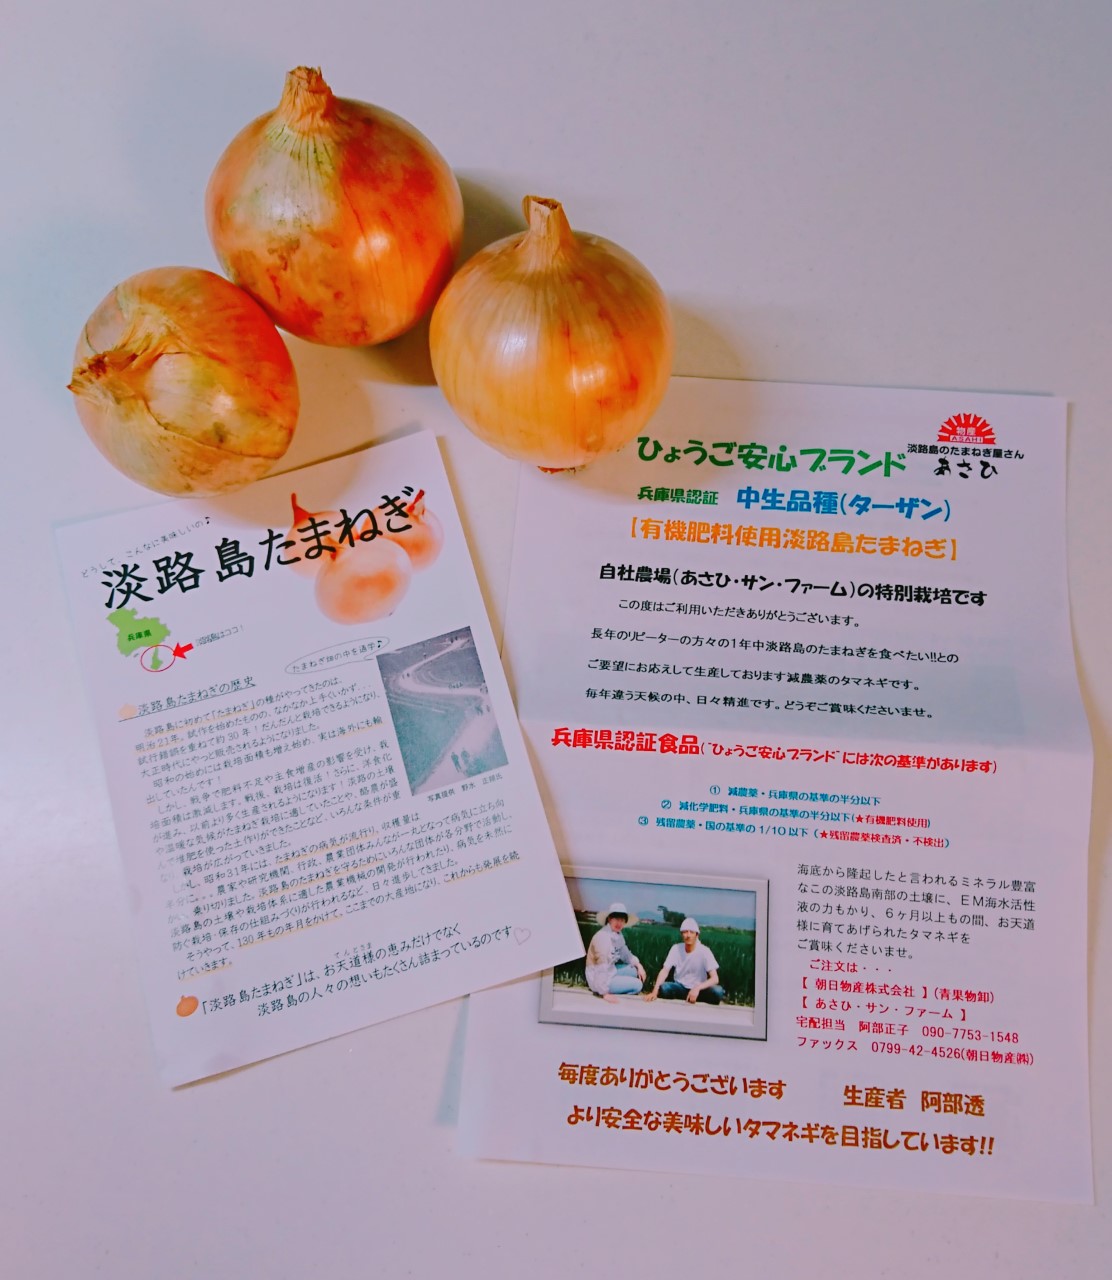 どうして、こんなに美味しいの♪
淡路島たまねぎ
兵庫県
淡路島はココ!
たまねぎ畑の中を通学♪
淡路島たまねぎの歴史
淡路島に初めて「たまねぎ」の種がやってきたのは、
明治21年。試作を始めたものの、なかなか上手くいかず...
試行錯誤を重ねて約30年!だんだんと栽培できるようになり、
大正時代にやっと販売されるようになりました。
昭和の始めには栽培面積も増え始め、実は海外にも輸
出していたんです!
しかし、戦争で肥料不足や主食増産の影響を受け、栽
培面積は激減します。戦後、栽培は復活!さらに、洋食化
が進み、以前より多く生産されるようになります!淡路の土壌
や温暖な気候がたまねぎ栽培に適していたことや、酪農が盛
んで堆肥を使った土作りができたことなど、いろんな条件が重
栽培が広がっていきました。
しかし、昭和31年には、たまねぎの病気が流行り、収穫量は
半分に。。。農家や研究機関、行政、農業団体みんなが一丸となって病気に立ち向
かい、乗り切りました。淡路島のたまねぎを守るためにいろんな団体が各分野で活動し、
淡路島の土壌や栽培体系に適した農業機械の開発が行われたり、病気を未然に
防ぐ栽培・保存の仕組みづくりが行われるなど、日々進歩してきました。
そうやって、130年もの年月をかけて、ここまでの大産地になり、これからも発展を続
けていきます。
写真提供 野水 正朔氏
てんとさま
「淡路島たまねぎ」は、お天道様の恵みだけでなく
淡路島の人々の想いもたくさん詰まっているのです♡
物産
ASAHI
淡路島のたまねぎ屋さん
あさひ
ひょうご安心ブランド
兵庫県認証 中生品種(ターザン)
【有機肥料使用淡路島たまねぎ】
自社農場(あさひ・サン・ファーム)の特別栽培です
この度はご利用いただきありがとうございます。
長年のリピーターの方々の1年中淡路島のたまねぎを食べたい!!との
ご要望にお応えして生産しております減農薬のタマネギです。
毎年違う天候の中、日々精進です。どうぞご賞味くださいませ。
兵庫県認証食品("ひょうご安心ブランド"には次の基準があります)
① 減農薬・兵庫県の基準の半分以下
② 減化学肥料・兵庫県の基準の半分以下(★有機肥料使用)
③ 残留農薬・国の基準の1/10以下(★残留農薬検査済・不検出)
海底から隆起したと言われるミネラル豊富
なこの淡路島南部の土壌に、EM海水活性
液の力もかり、6ヶ月以上もの間、お天道
様に育てあげられたタマネギを
ご賞味くださいませ。
ご注文は・・・
【 朝日物産株式会社 】(青果物卸)
【 あさひ・サン・ファーム 】
宅配担当 阿部正子 090-7753-1548
ファックス 0799-42-4526(朝日物産㈱)
毎度ありがとうございます
生産者 阿部透
より安全な美味しいタマネギを目指しています!!